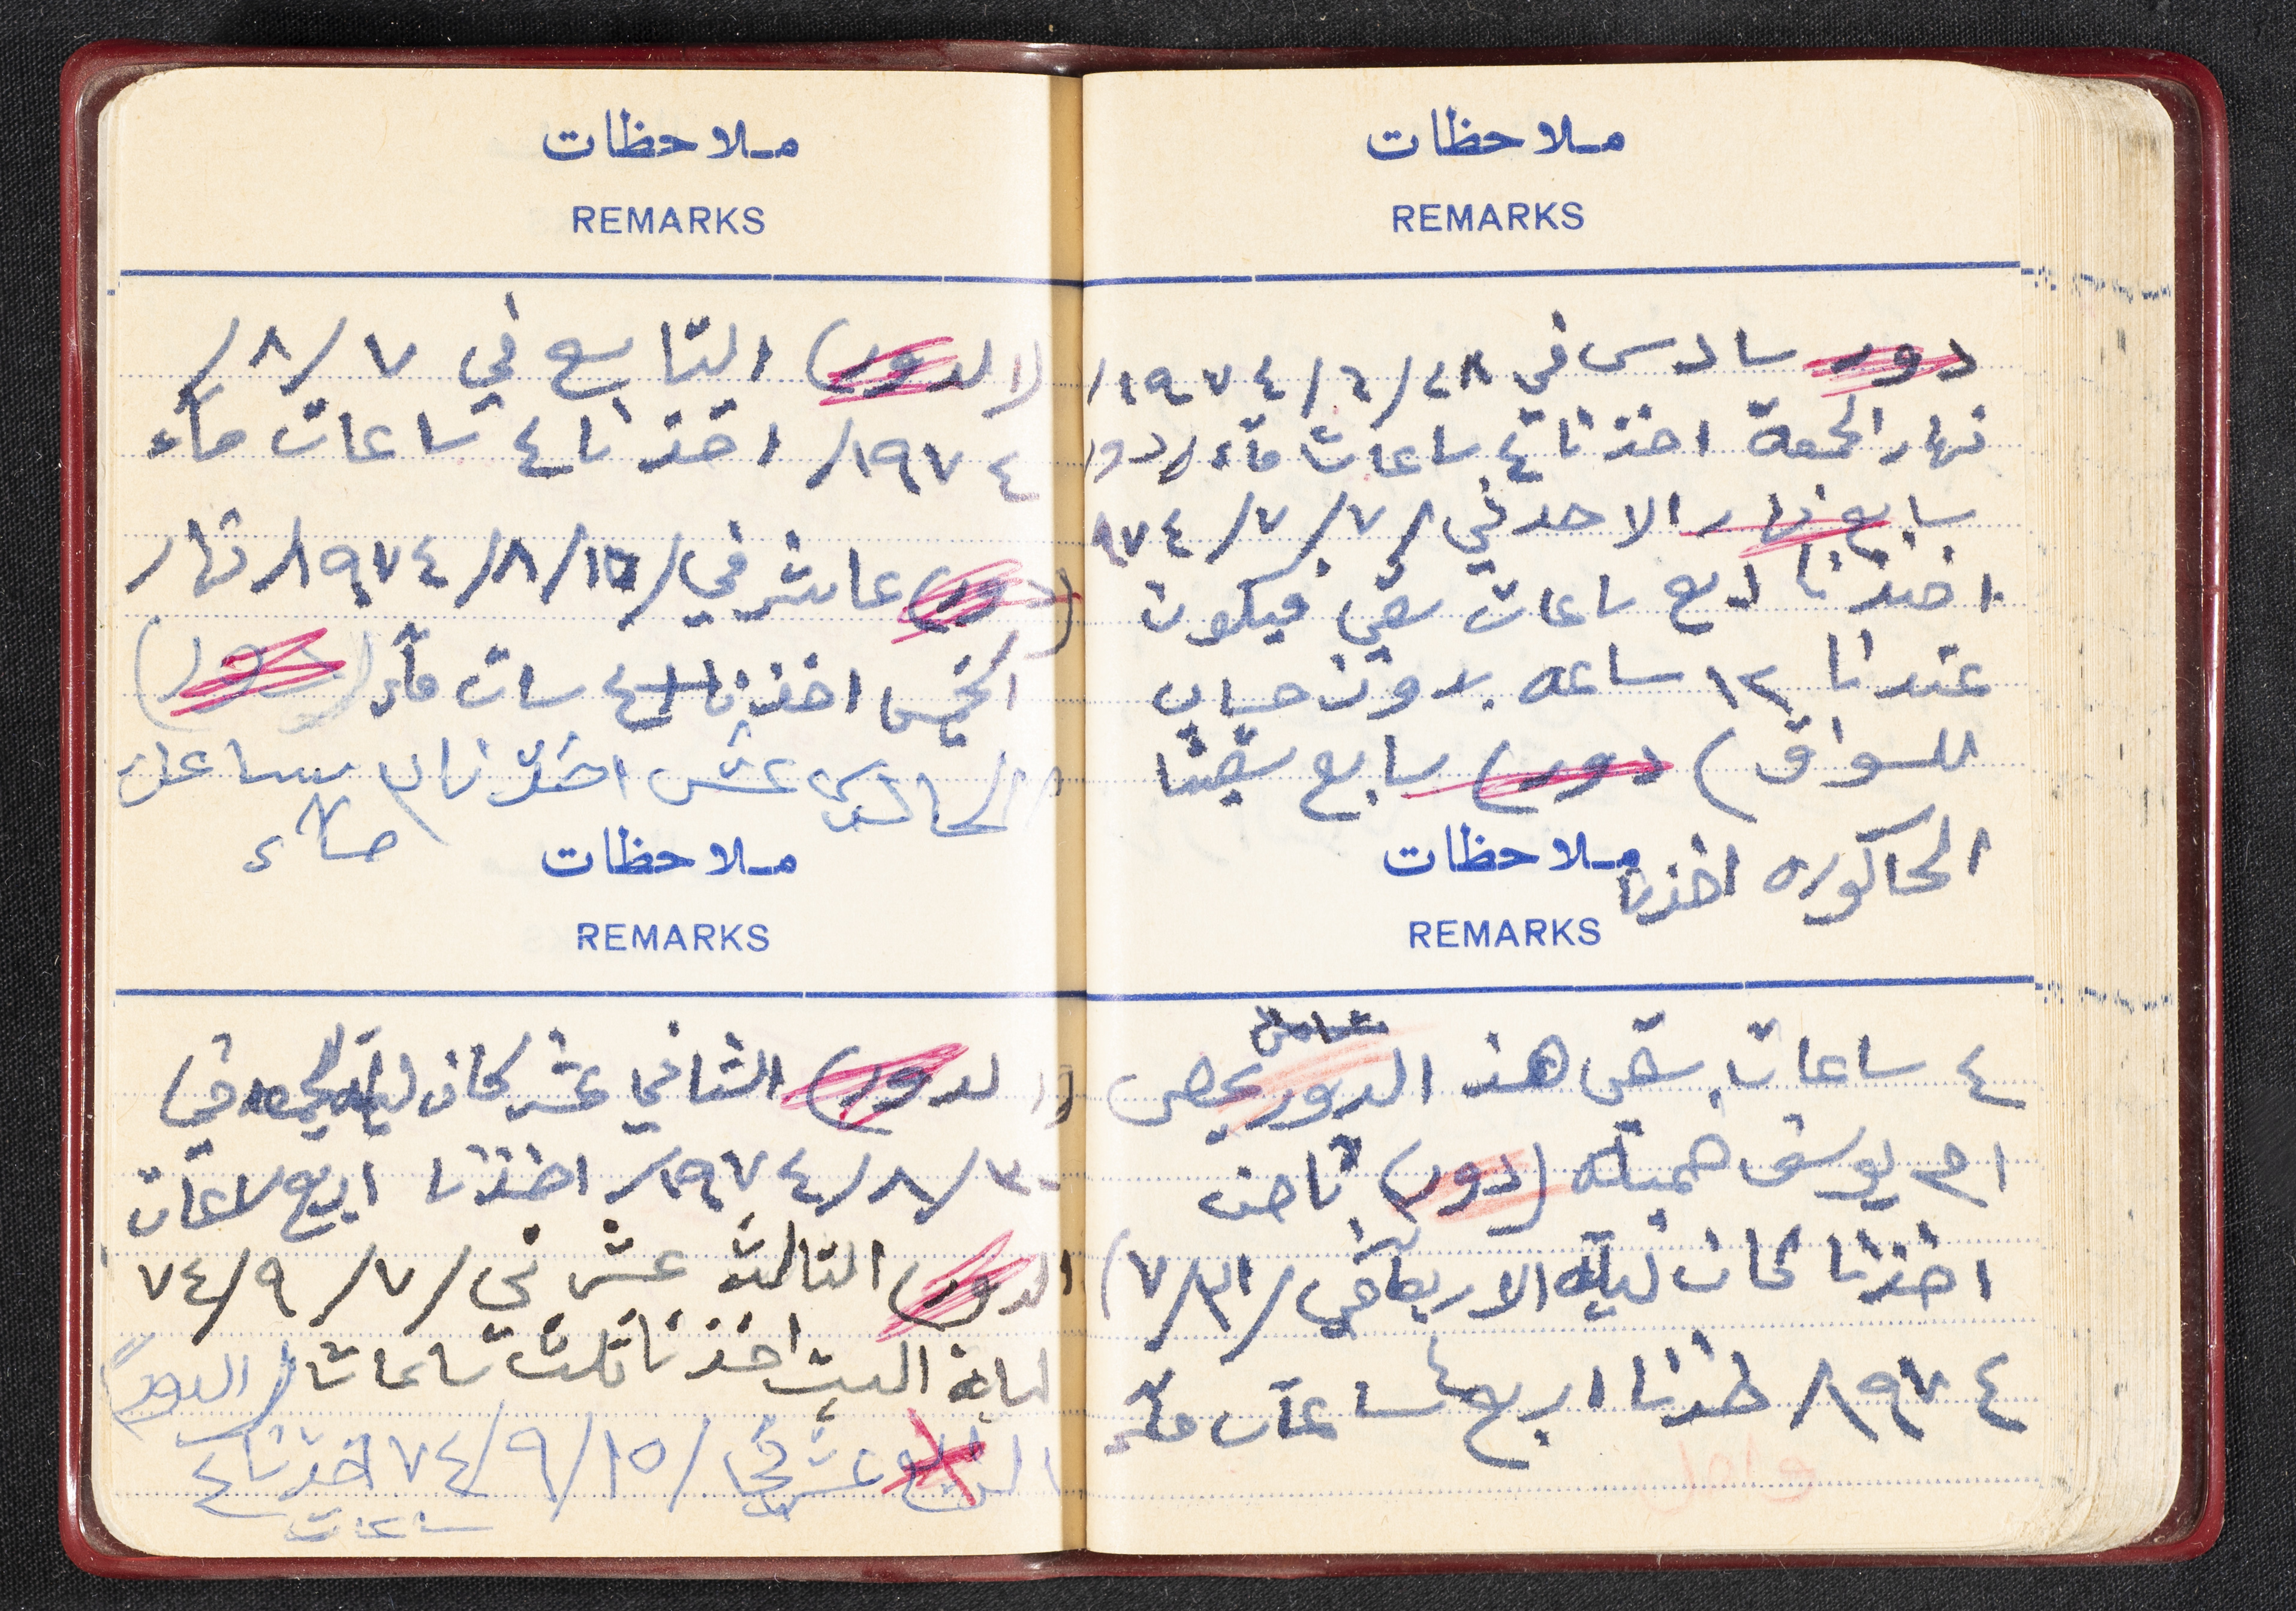 ملاحظات
REMARKS
دور سادس في ٢٨/٦/١٩٧٤/
نهار الجمعة اخذنا ٤ ساعات ماء (دور
سابع نهار الاحد في /٧/٧/٩٧٤
اخذنا اربع ساعات سقي فيكون
عندنا ١٢ ساعه بدون حساب
للسواق) دور) سابع سقينا
الحاكوره اخذنا
ملاحظات
REMARKS
٤ ساعات سقي هذ الدور يخص
ام يوسف (دور) ثامن
اخذنا كان ليلة الاربعا في /٣١/٧)
١٩٧٤/ اخذنا اربع ٤ ساعات ماء
ملاحظات
REMARKS
(الدور) التاسع في ٧/٨/
١٩٧٤/ اخذنا ٤ ساعات ماء
(دور) عاشر في /١٥/٨/١٩٧٤ نهار
الخميس اخذنا ٤ سات ماء (دور)
الحادي عشر اخذنا ساعات
ماء
ملاحظات
REMARKS
(الدور) الثاني عشر كان ليلة الجمعه في
٣٠/٨/١٩٧٤/ اخذنا اربع ساعات
الدور) الثالث عشر في /٧/٩/٧٤
ليلة السبت اخذنا ثلث ساعات (الدور)
الرابع عشر في /١٥/٩/٧٤ اخذنا ٤
ساعات